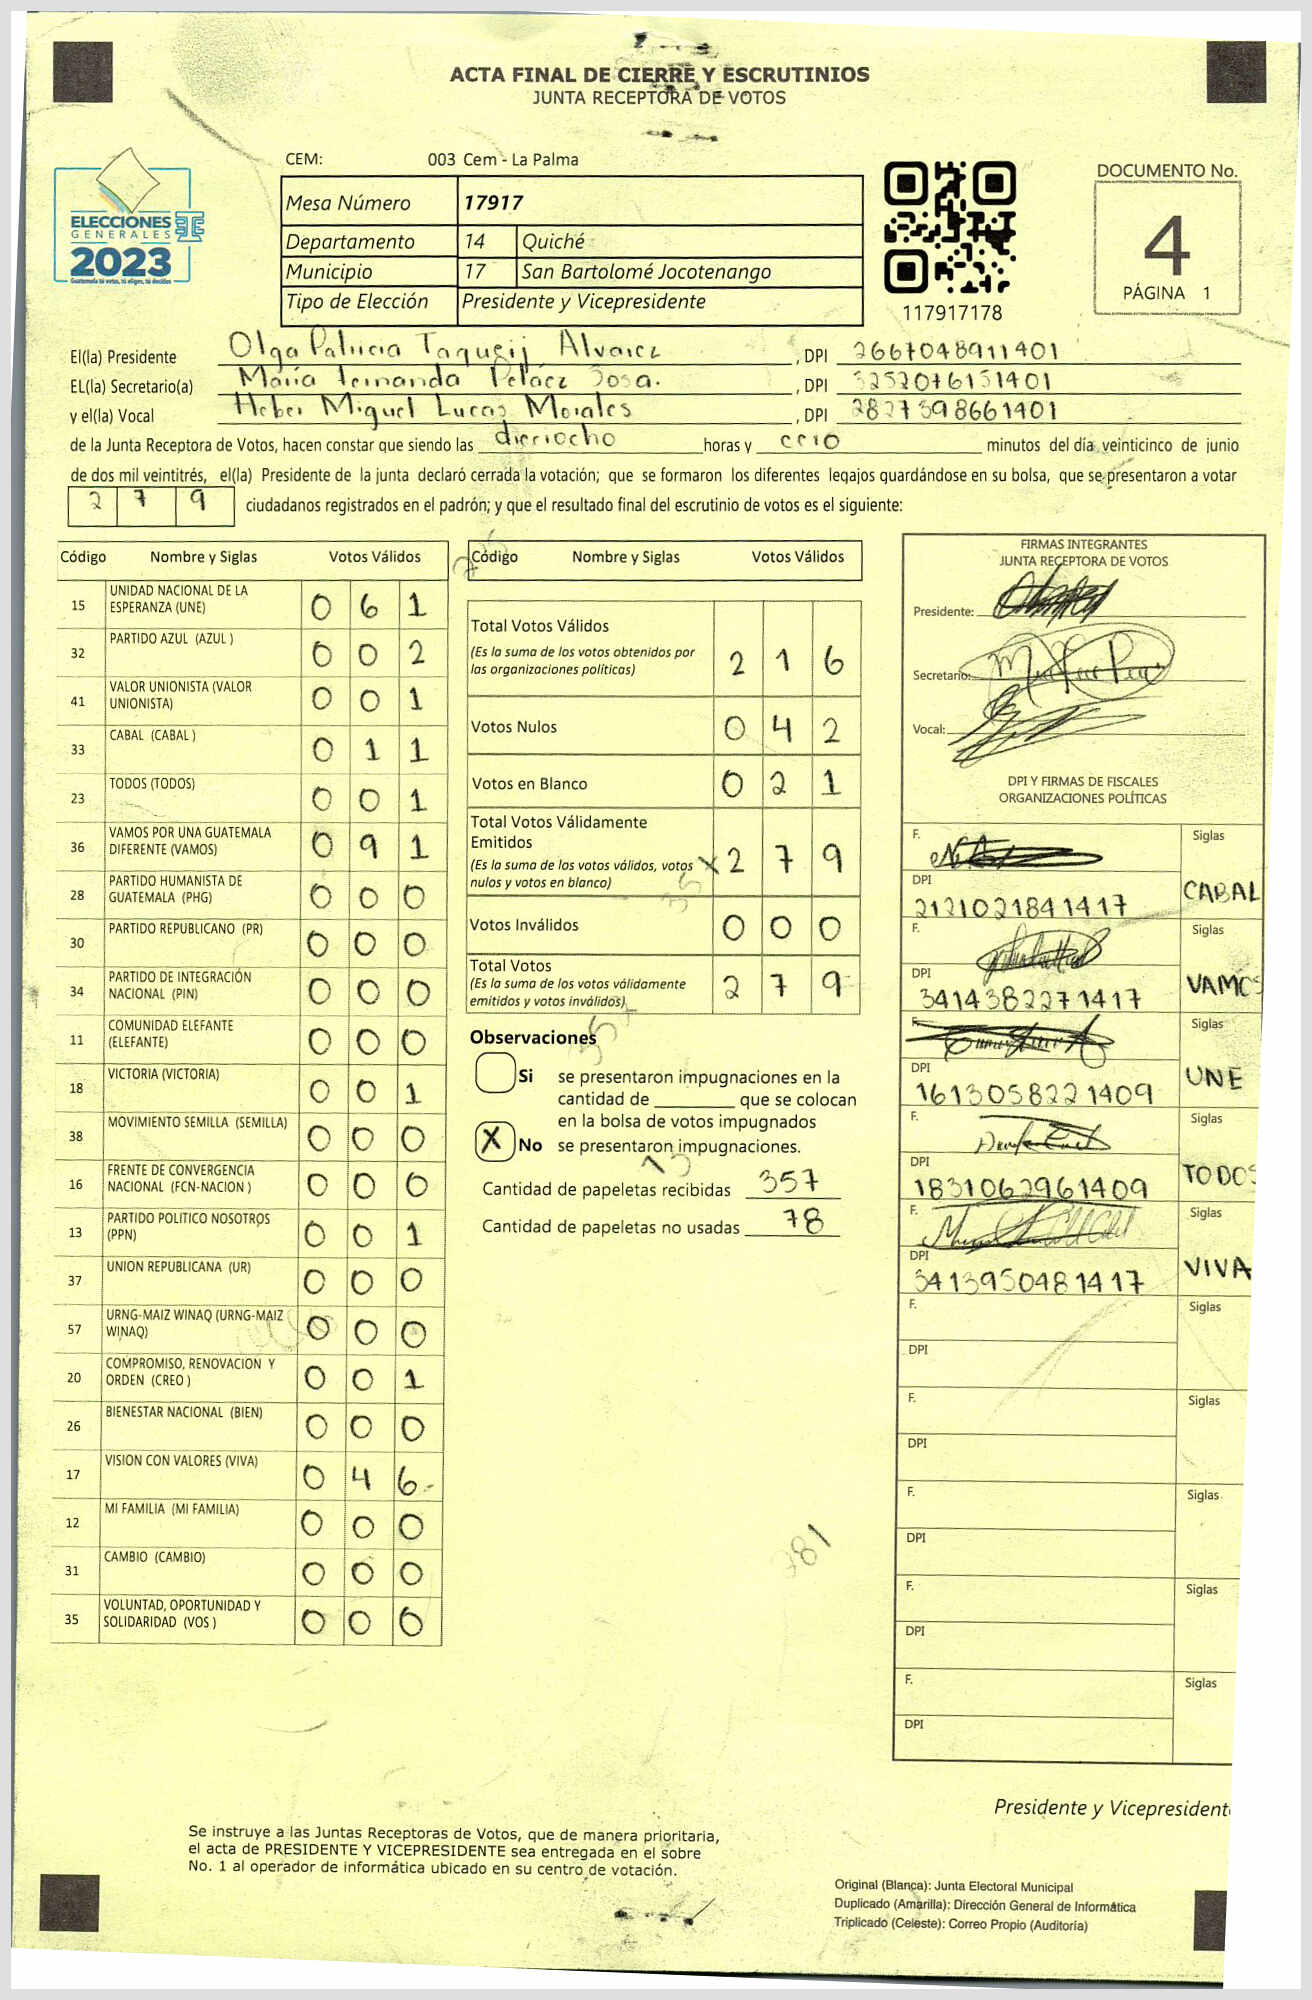 ACTA FINAL DE CIERRE Y ESCRUTINIOS
JUNTA RECEPTORA DE VOTOS
CEM: 003 Cem - La Palma
ELECCIONES
GENERALES
2023
Guatemala tú votas, tú eliges, tú decides
Mesa Número 17917
Departamento 14 Quiché
Municipio 17 San Bartolomé Jocotenango
Tipo de Elección Presidente y Vicepresidente
117917178
DOCUMENTO No.
4
PÁGINA 1
El(la) Presidente Olga Patricia Taqueij Alvarez, DPI 2667048911401
EL(la) Secretario(a) María Fernanda Peláez Sosa., DPI 3252076151401
y el(la) Vocal Heber Miguel Lucas Morales, DPI 2827398661401
de la Junta Receptora de Votos, hacen constar que siendo las dieciocho horas y cero minutos del día veinticinco de junio
de dos mil veintitrés, el(la) Presidente de la junta declaró cerrada la votación; que se formaron los diferentes legajos guardándose en su bolsa, que se presentaron a votar
2 7 9 ciudadanos registrados en el padrón; y que el resultado final del escrutinio de votos es el siguiente:
Código Nombre y Siglas Votos Válidos
15 UNIDAD NACIONAL DE LA ESPERANZA (UNE) 0 6 1
32 PARTIDO AZUL (AZUL ) 0 0 2
41 VALOR UNIONISTA (VALOR UNIONISTA) 0 0 1
33 CABAL (CABAL ) 0 1 1
23 TODOS (TODOS) 0 0 1
36 VAMOS POR UNA GUATEMALA DIFERENTE (VAMOS) 0 9 1
28 PARTIDO HUMANISTA DE GUATEMALA (PHG) 0 0 0
30 PARTIDO REPUBLICANO (PR) 0 0 0
34 PARTIDO DE INTEGRACIÓN NACIONAL (PIN) 0 0 0
11 COMUNIDAD ELEFANTE (ELEFANTE) 0 0 0
18 VICTORIA (VICTORIA) 0 0 1
38 MOVIMIENTO SEMILLA (SEMILLA) 0 0 0
16 FRENTE DE CONVERGENCIA NACIONAL (FCN-NACION ) 0 0 0
13 PARTIDO POLITICO NOSOTROS (PPN) 0 0 1
37 UNION REPUBLICANA (UR) 0 0 0
57 URNG-MAIZ WINAQ (URNG-MAIZ WINAQ) 0 0 0
20 COMPROMISO, RENOVACION Y ORDEN (CREO ) 0 0 1
26 BIENESTAR NACIONAL (BIEN) 0 0 0
17 VISION CON VALORES (VIVA) 0 4 6
12 MI FAMILIA (MI FAMILIA) 0 0 0
31 CAMBIO (CAMBIO) 0 0 0
35 VOLUNTAD, OPORTUNIDAD Y SOLIDARIDAD (VOS ) 0 0 0
Código Nombre y Siglas Votos Válidos
Total Votos Válidos
(Es la suma de los votos obtenidos por
las organizaciones políticas) 2 1 6
Votos Nulos 0 4 2
Votos en Blanco 0 2 1
Total Votos Válidamente
Emitidos
(Es la suma de los votos válidos, votos
nulos y votos en blanco) 2 7 9
Votos Inválidos 0 0 0
Total Votos
(Es la suma de los votos válidamente
emitidos y votos inválidos) 2 7 9
Observaciones
Si se presentaron impugnaciones en la
cantidad de que se colocan
en la bolsa de votos impugnados
X No se presentaron impugnaciones.
Cantidad de papeletas recibidas 357
Cantidad de papeletas no usadas 78
781
FIRMAS INTEGRANTES
JUNTA RECEPTORA DE VOTOS
Presidente:
Secretario:
Vocal:
DPI Y FIRMAS DE FISCALES
ORGANIZACIONES POLÍTICAS
F. Siglas
DPI 2121021841417 CABAL
F. Siglas
DPI 3414382271417 VAMOS
F. Siglas
DPI 1613058221409 UNE
F. Siglas
DPI 1831062961409 TODOS
F. Siglas
DPI 3413950481417 VIVA
F. Siglas
DPI
F. Siglas
DPI
F. Siglas
DPI
F. Siglas
DPI
F. Siglas
DPI
Presidente y Vicepresident
Se instruye a las Juntas Receptoras de Votos, que de manera prioritaria,
el acta de PRESIDENTE Y VICEPRESIDENTE sea entregada en el sobre
No. 1 al operador de informática ubicado en su centro de votación.
Original (Blanca): Junta Electoral Municipal
Duplicado (Amarilla): Dirección General de Informática
Triplicado (Celeste): Correo Propio (Auditoría)